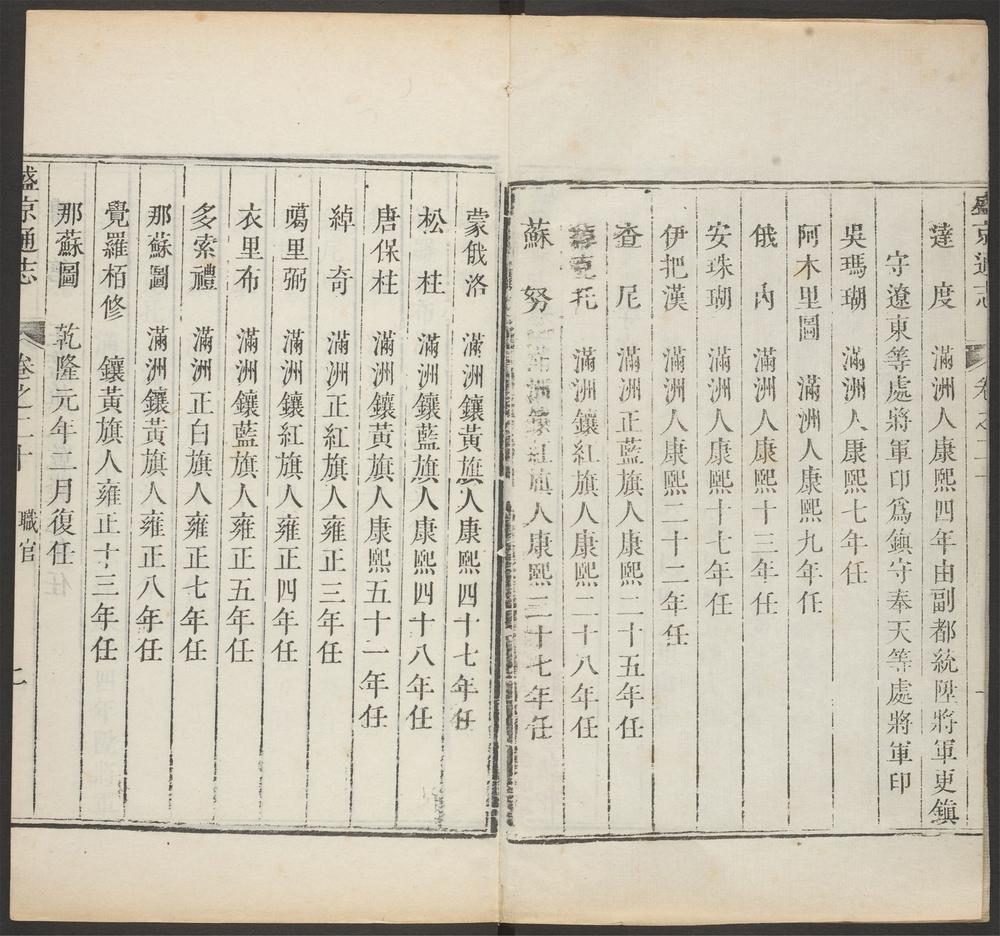 盛京通志 卷之二
達度 滿洲人康熙四年由副都統陞將軍更鎮
守遼東等處將軍印爲鎮守奉天等處將軍印
吳瑪瑚 滿洲人康熙七年任
阿木里圖 滿洲人康熙九年任
俄內 滿洲人康熙十三年任
安珠瑚 滿洲人康熙十七年任
伊把漢 滿洲人康熙二十二年任
查尼 滿洲正藍旗人康熙二十五年任
克托 滿洲鑲紅旗人康熙二十八年任
蘇努 滿洲鑲紅旗人康熙三十七年任
蒙俄洛 滿洲鑲黃旗人康熙四十七年任
松柱 滿洲鑲藍旗人康熙四十八年任
唐保柱 滿洲鑲黃旗人康熙五十一年任
綽奇 滿洲正紅旗人雍正三年任
噶里弼 滿洲鑲紅旗人雍正四年任
衣里布 滿洲鑲藍旗人雍正五年任
多索禮 滿洲正白旗人雍正七年任
那蘇圖 滿洲鑲黃旗人雍正八年任
覺羅栢修 鑲黃旗人雍正十三年任
那蘇圖 乾隆元年二月復任
盛京通志 卷之二十 職官